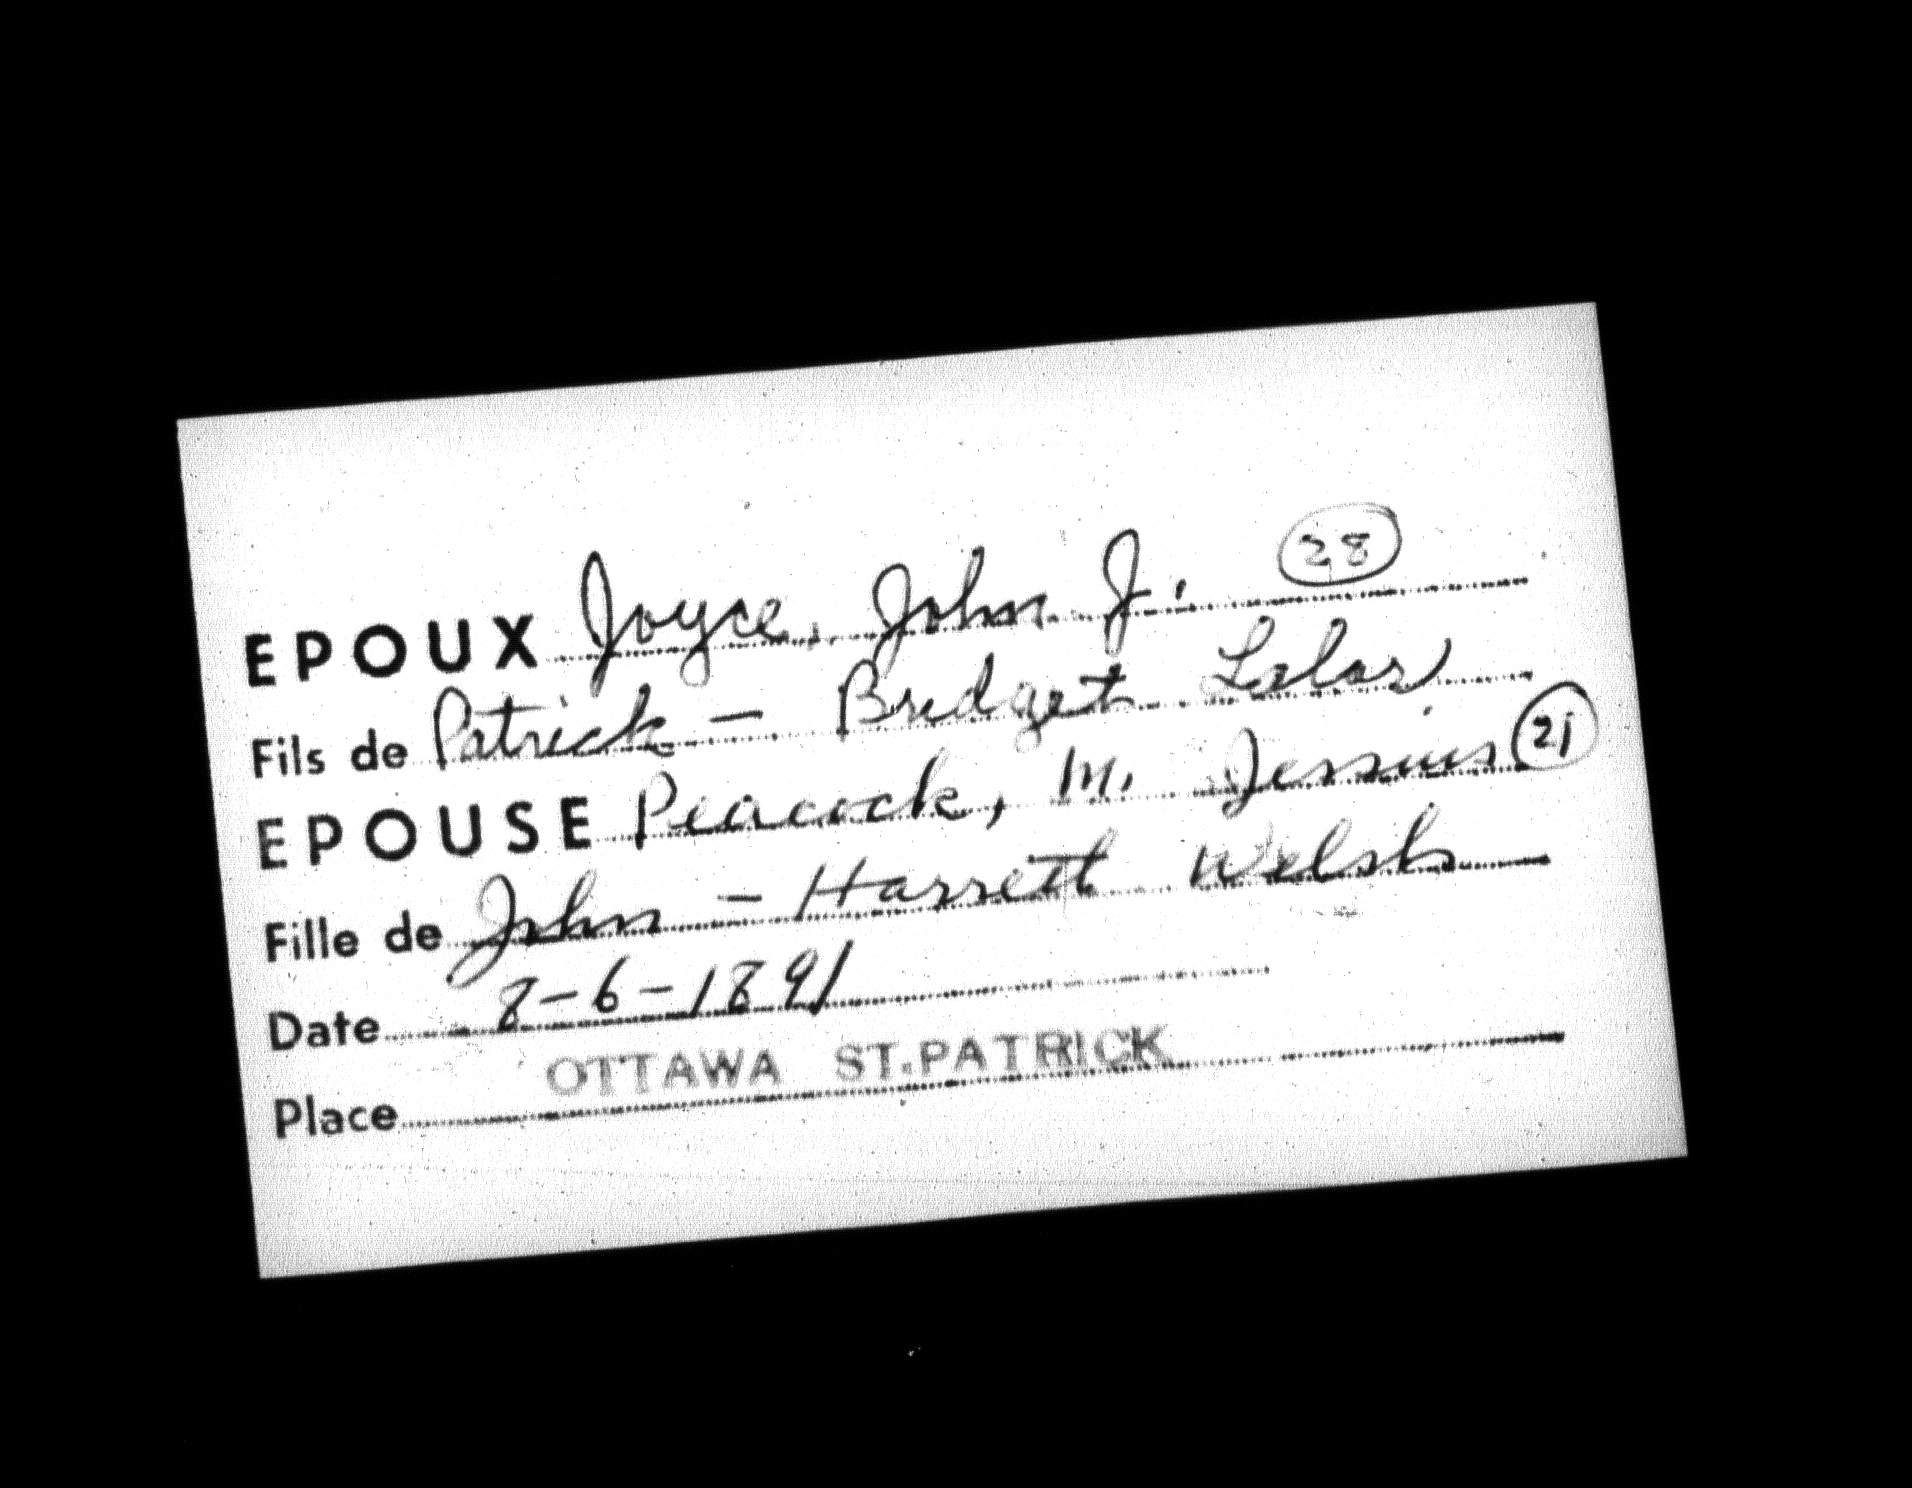 EPOUX Joyce, John J. 28
Fils de Patrick - Bridget Lalor
EPOUSE Peacock, M. 21
Fille de John - Harriett Welsh
Date 8-6-1891
OTTAWA ST.PATRICK
Place